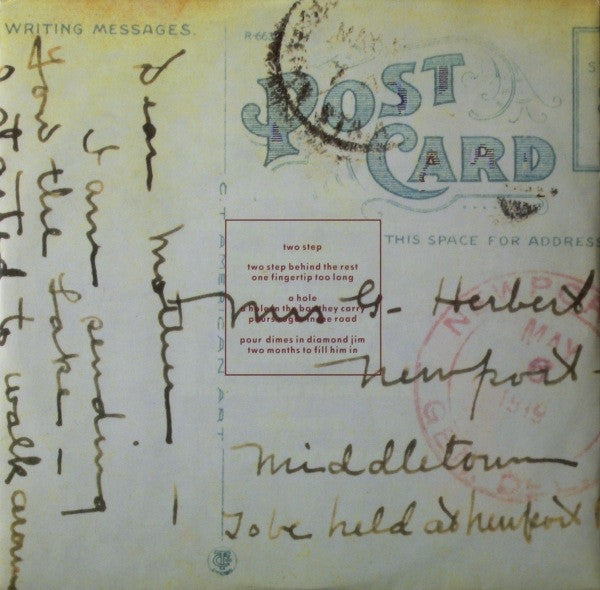 WRITING MESSAGES.
R-663
POST
CARD
THIS SPACE FOR ADDRESS
C.T. AMERICAN ART
MAY
Dear Mother —
I am sending
the Lake —
started to walk around
two step
two step behind the rest
one fingertip too long
a hole
a hole in the they carry
pours sugar the road
pour dimes in diamond jim
two months to fill him in
Miss G. Herbert
Newport -
Middletown
To be held at Newport
NEWPOR
MAY
1919